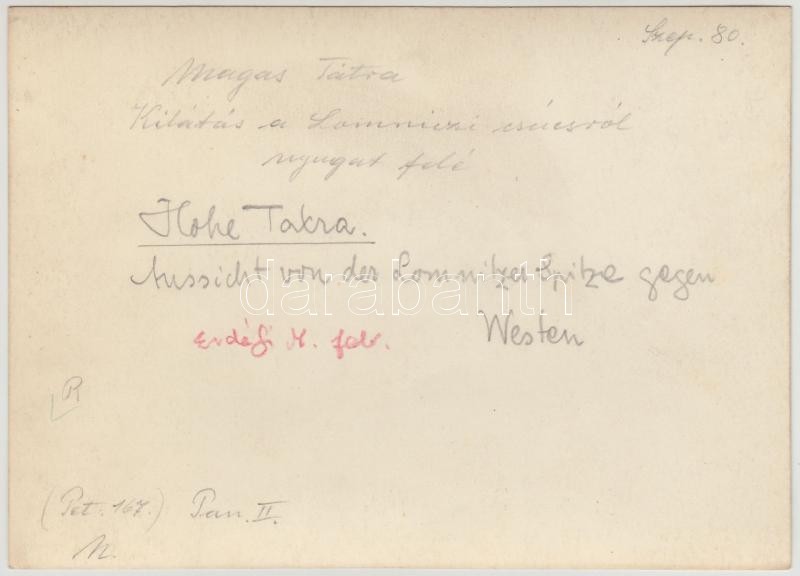 Szep. 80.
Magas Tátra
Kilátás a Lomniczi csúcsról
nyugat felé
Hohe Tatra.
Aussicht von der Lomnitzer Spitze gegen
Westen
darabanth
Erdélyi M. felv.
R
(Pet. 167.) Pan. II.
N.